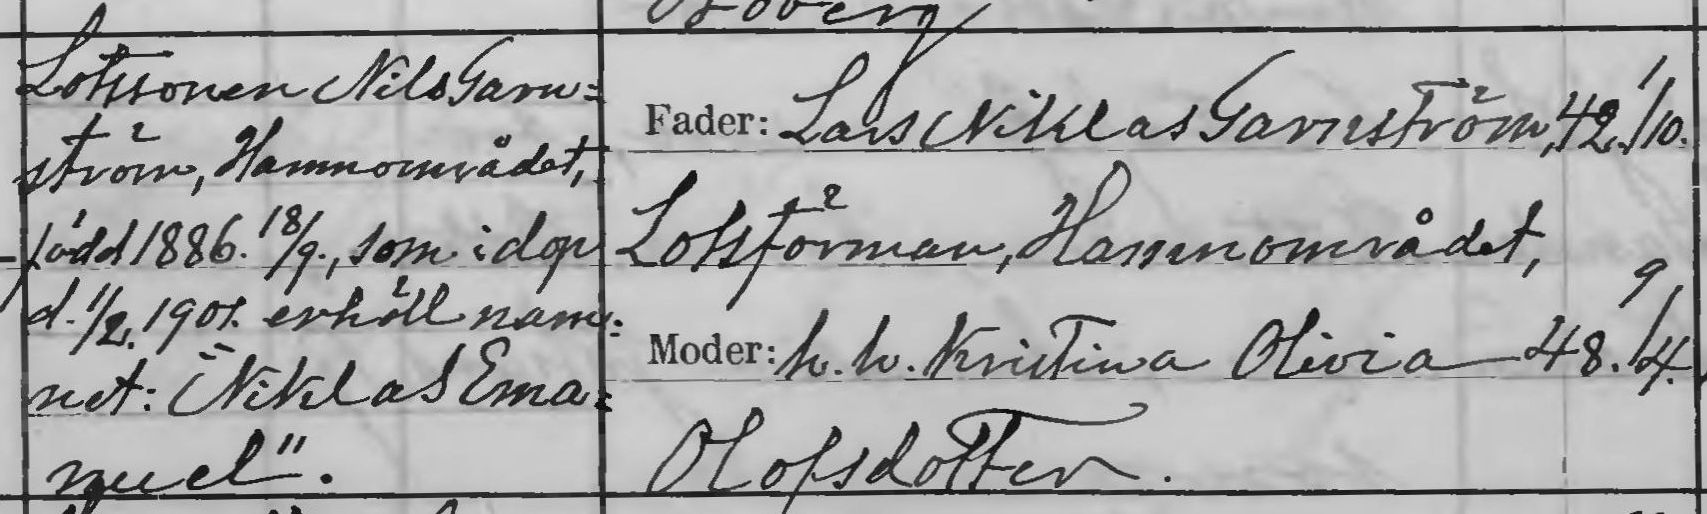 Lotssonen Nils Garn=
ström, Hamnområdet,
född 1886. 18/9., som i dop
d. 1/2. 1901. erhöll nam=
net: "Niklas Ema=
nuel".
Fader: Lars Niklas Garnström, 42. 1/10.
Lotsförman, Hamnområdet,
Moder: h. h. Kristina Olivia 48. 9/4.
Olofsdotter.